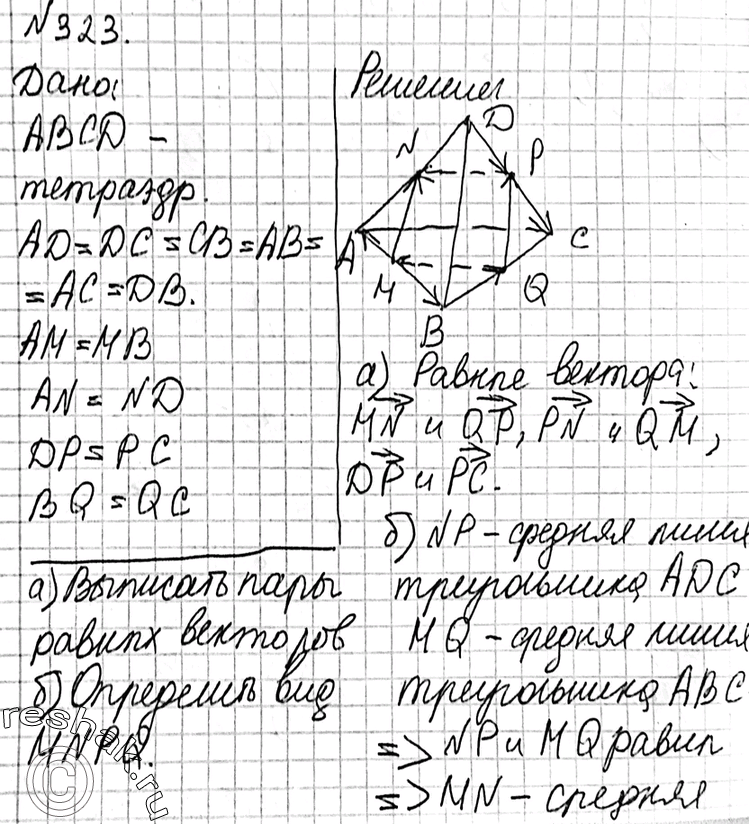 N323.
Дано:
ABCD –
тетраэдр.
AD=DC=CB=AB=
=AC=DB.
AM=MB
AN=ND
DP=PC
BQ=QC
а) Выписать пары
равных векторов
б) Определить вид
MNPQ.
Решение:
D
N
P
A
C
M
Q
B
а) Равные вектора:
MN и QP, PN и QM,
DP и PC.
б) NP – средняя линия
треугольника ADC
MQ – средняя линия
треугольника ABC
=> NP и MQ равны
=> MN – средняя
reshak.ru
©